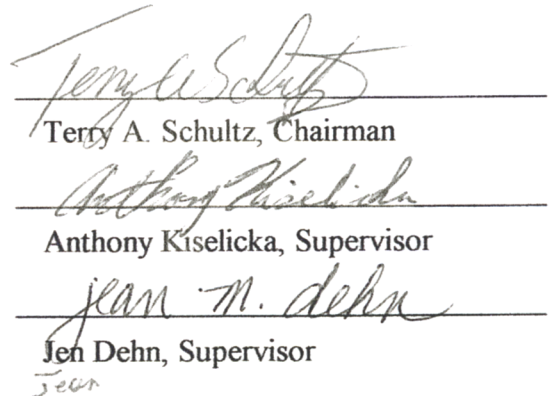 Terry A Schultz
Terry A. Schultz, Chairman
Anthony Kiselicka
Anthony Kiselicka, Supervisor
jean m. dehn
Jen Dehn, Supervisor
Jean